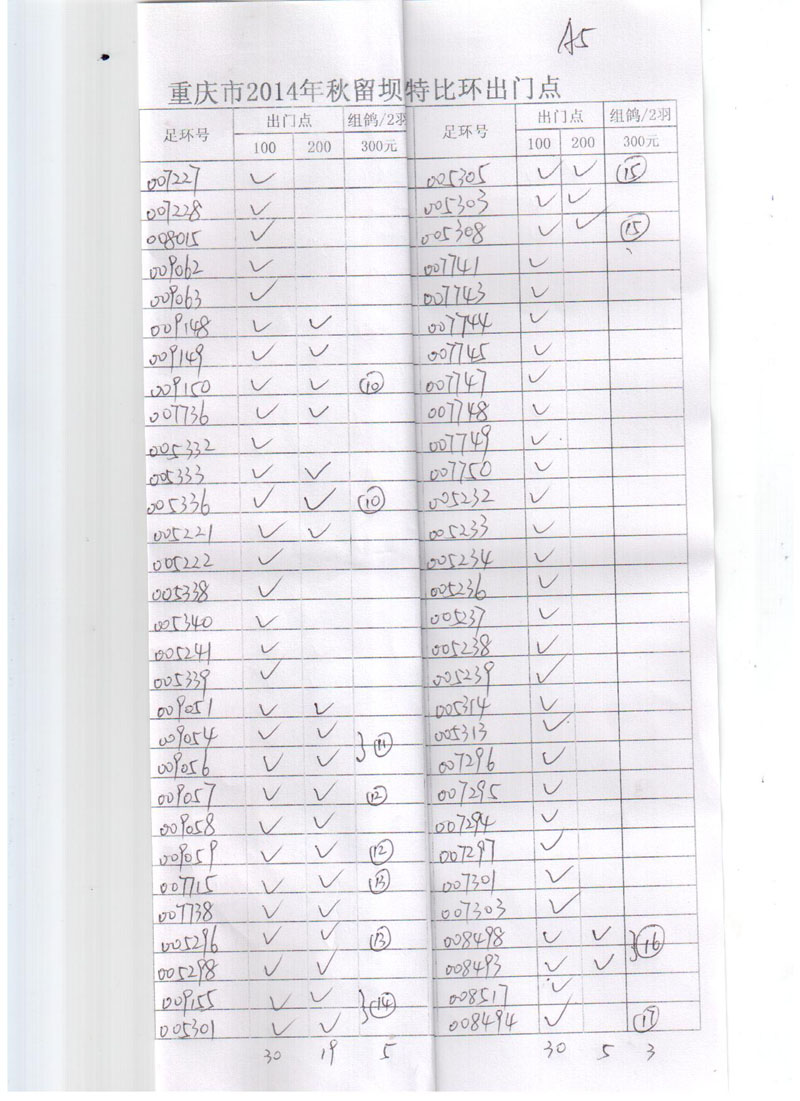 A5
重庆市2014年秋留坝特比环出门点
足环号 出门点 组鸽/2羽 足环号 出门点 组鸽/2羽
100 200 300元 100 200 300元
007227 ✓ 005305 ✓ ✓ ⑮
007228 ✓ 005303 ✓ ✓
008015 ✓ 005308 ✓ ✓ ⑮
009062 ✓ 007741 ✓
009063 ✓ 007743 ✓
009148 ✓ ✓ 007744 ✓
009149 ✓ ✓ 007745 ✓
009150 ✓ ✓ ⑩ 007747 ✓
007736 ✓ ✓ 007748 ✓
005332 ✓ 007749 ✓
005333 ✓ ✓ 007750 ✓
005336 ✓ ✓ ⑩ 005232 ✓
005221 ✓ ✓ 005233 ✓
005222 ✓ 005234 ✓
005338 ✓ 005236 ✓
005340 ✓ 005237 ✓
005241 ✓ 005238 ✓
005339 ✓ 005239 ✓
009051 ✓ ✓ 005314 ✓
009054 ✓ ✓ } ⑪ 005313 ✓
009056 ✓ ✓ 007296 ✓
009057 ✓ ✓ ⑫ 007295 ✓
009058 ✓ ✓ 007294 ✓
009059 ✓ ✓ ⑫ 007297 ✓
007715 ✓ ✓ ⑬ 007301 ✓
007738 ✓ ✓ 007303 ✓
005296 ✓ ✓ ⑬ 008498 ✓ ✓ } ⑯
005298 ✓ ✓ 008493 ✓ ✓
009155 ✓ ✓ } ⑭ 008517 ✓
005301 ✓ ✓ 008494 ✓ ⑰
30 19 5 30 5 3